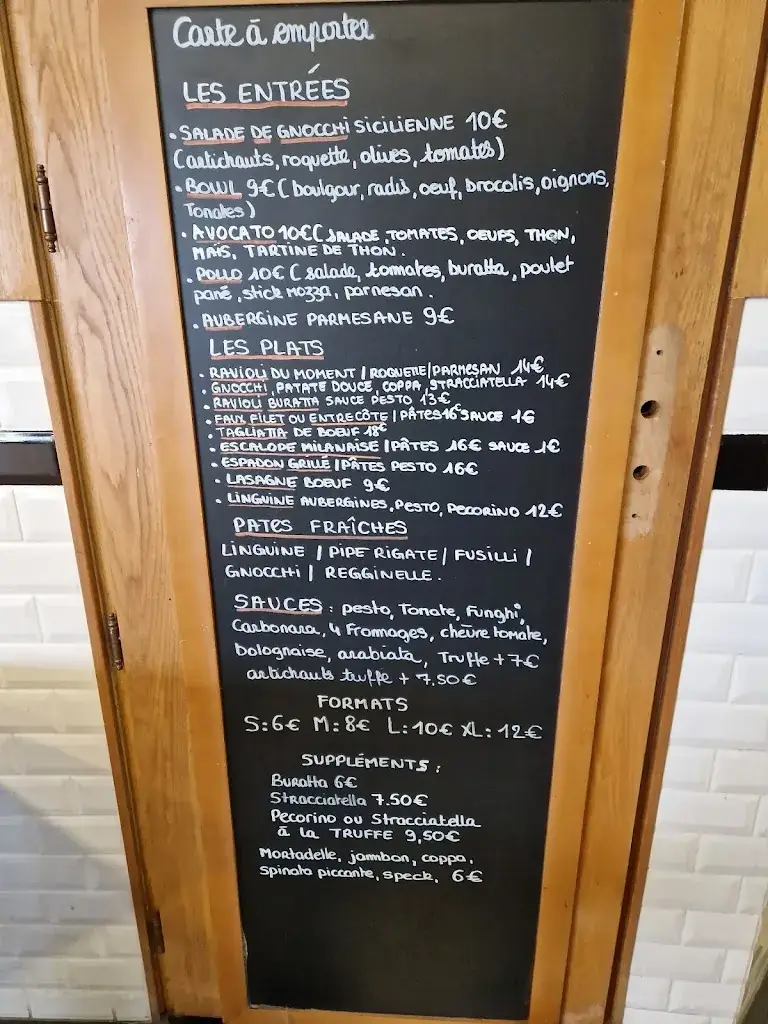 Carte à emporter
LES ENTRÉES
• SALADE DE GNOCCHI SICILIENNE 10€
(artichauts, roquette, olives, tomates)
• BOWL 9€ ( boulgour, radis, oeuf, brocolis, oignons,
Tomates )
• AVOCATO 10€ ( SALADE, TOMATES, OEUFS, THON,
MAÏS, TARTINE DE THON.
• POLLO 10€ ( salade, tomates, buratta, poulet
pané, stick mozza, parmesan.
• AUBERGINE PARMESANE 9€
LES PLATS
• RAVIOLI DU MOMENT / ROQUETTE / PARMESAN 14€
• GNOCCHI, PATATE DOUCE, COPPA, STRACCIATELLA 14€
• RAVIOLI BURATTA SAUCE PESTO 13€
• FAUX FILET OU ENTRECÔTE / PÂTES 16€ SAUCE 1€
• TAGLIATTA DE BOEUF 18€
• ESCALOPE MILANAISE / PÂTES 16€ SAUCE 1€
• ESPADON GRILLÉ / PÂTES PESTO 16€
• LASAGNE BOEUF 9€
• LINGUINE AUBERGINES, PESTO, PECORINO 12€
PATES FRAÎCHES
LINGUINE / PIPE RIGATE / FUSILLI /
GNOCCHI / REGGINELLE.
SAUCES : pesto, Tomate, Funghi,
Carbonara, 4 Fromages, chèvre tomate,
bolognaise, arabiata, Truffe + 7€
artichauts truffe + 7.50€
FORMATS
S: 6€ M: 8€ L: 10€ XL: 12€
SUPPLÉMENTS :
Buratta 6€
Stracciatella 7.50€
Pecorino ou Stracciatella
à la TRUFFE 9,50€
Mortadelle, jambon, coppa,
spinata piccante, speck, 6€